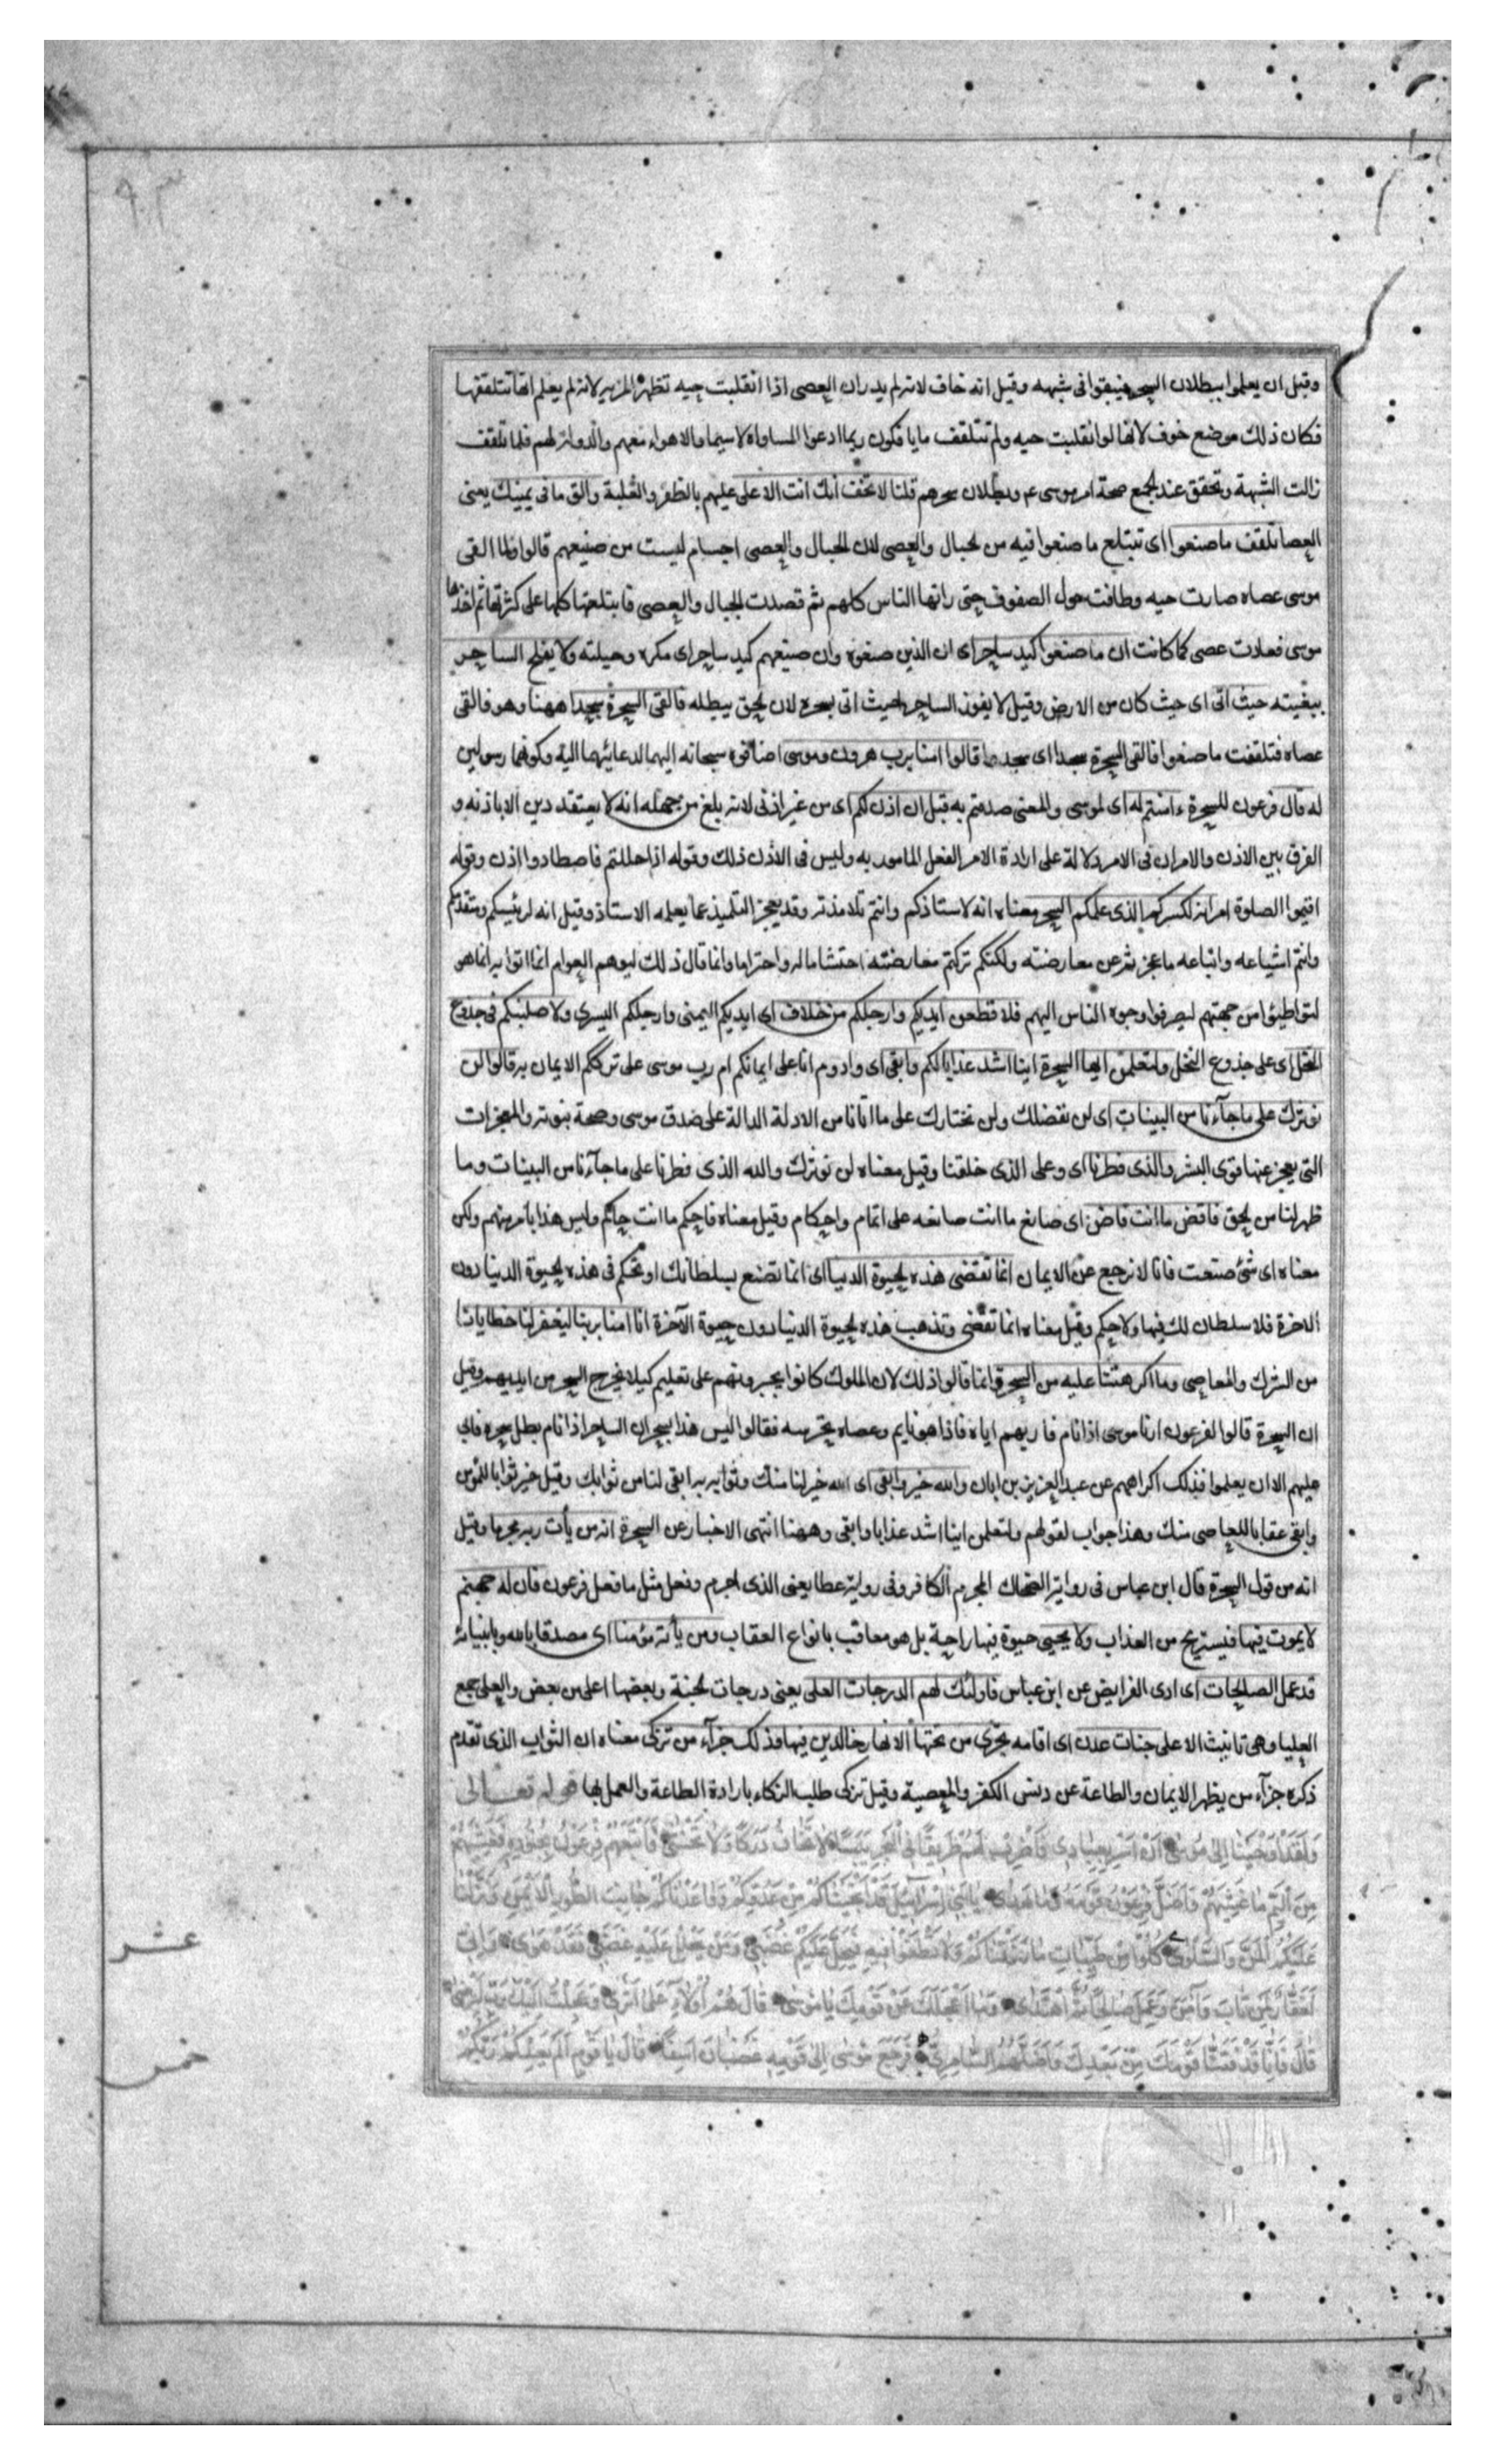 وقيل ان يعلموا ببطلان السحر فيبقوا فى شبهه وقيل انه خاف لانه لم يدر ان العصى اذا انقلبت حيه تظهر المزيه لانه لم يعلم انها تتلقفها
فكان ذلك موضع خوف لانها لو انقلبت حيه ولم تتلقف ما يأفكون ربما ادعوا المساواة لاسيما والاهواء معهم والدولة لهم فلما تلقفت
زالت الشبهة وتحقق عند الجمع صحة امر موسى ع م وبطلان سحرهم قلنا لا تخف انك انت الاعلى عليهم بالظفر والغلبة والق ما فى يمينك يعنى
العصا تلقف ما صنعوا اى تبتلع ما صنعوا فيه من الحبال والعصى لان الحبال والعصى اجسام ليست من صنيعهم قالوا ولما القى
موسى عصاه صارت حيه وطافت حول الصفوف حتى راتها الناس كلهم ثم قصدت الحبال والعصى فابتلعتها كلها على كثرتها ثم اخذها
موسى فعادت عصى كما كانت ان ما صنعوا كيد ساحر اى ان الذين صنعوه وان صنيعهم كيد ساحر اى مكره وحيلته ولا يفلح الساحر
ببغيته حيث اتى اى حيث كان من الارض وقيل لا يفوز الساحر حيث اتى بسحره لان الحق يبطله فالقى السحرة سجدا ههنا وهو فالقى
عصاه فتلقفت ما صنعوا فالقى السحرة سجدا اى سجدوا قالوا امنا برب هرون وموسى اضافوه سبحانه اليهما لدعائهما اليه وكونهما رسولين
له قال فرعون للسحرة ءامنتم له اى لموسى والمعنى صدقتم به قبل ان اذن لكم اى من غير اذنى لانه بلغ من جهله انه لا يعتقد دين الا باذنه و
الفرق بين الاذن والامر ان فى الامر دلالة على ارادة الامر الفعل المامور به وليس فى الاذن ذلك وقوله اذا حللتم فاصطادوا اذن وقوله
اقيموا الصلوة امر انه لكبيركم الذى علمكم السحر معناه انه لاستاذكم وانتم تلامذته وقد يعجز التلميذ عما يعلمه الاستاذ وقيل انه لرئيسكم ومتقدمكم
وانتم اشياعه واتباعه ما عجزتم عن معارضته ولكنكم تركتم معارضته احتشاما له واحتراما وانما قال ذلك ليوهم العوام انما اتوا به انما هو
لتواطئوا من جهتهم ليصرفوا وجوه الناس اليهم فلاقطعن ايديكم وارجلكم من خلاف اى ايديكم اليمنى وارجلكم اليسرى ولاصلبنكم فى جذوع
النخل اى على جذوع النخل ولتعلمن ايها السحرة اينا اشد عذابا لكم وابقى اى وادوم انا على ايمانكم ام رب موسى على ترككم الايمان به قالوا لن
نوثرك على ما جآءنا من البينات اى لن نفضلك ولن نختارك على ما اتانا من الادلة الدالة على صدق موسى وصحة نبوته والمعجزات
التى يعجز عنها قوى البشر والذى فطرنا اى وعلى الذى خلقنا وقيل معناه لن نوثرك والله الذى فطرنا على ما جآءنا من البينات وما
ظهر لنا من الحق فاقض ما انت قاض اى صانع ما انت صانعه على اتمام واحكام وقيل معناه فاحكم ما انت حاكم وليس هذا بامر منهم ولكن
معناه اى شئ صنعت فانا لا نرجع عن الايمان انما تقضى هذه الحيوة الدنيا اى انما تصنع بسلطانك او تحكم فى هذه الحيوة الدنيا دون
الاخرة فلا سلطان لك فيها ولا حكم وقيل معناه انما تقضى وتذهب هذه الحيوة الدنيا دون حيوة الآخرة انا امنا بربنا ليغفر لنا خطايانا
من الشرك والمعاصى وما اكرهتنا عليه من السحر وانما قالوا ذلك لان الملوك كانوا يجبرونهم على تعليم كيلا يخرج السحر من ايديهم وقيل
ان السحرة قالوا لفرعون ارنا موسى اذا نام فاريهم اياه فاذا هو نايم وعصاه تحرسه فقالوا ليس هذا بسحر ان الساحر اذا نام بطل سحره فابى
عليهم الا ان يعملوا فذلك اكراههم عن عبد العزيز بن ابان والله خير وابقى اى الله خير لنا منك وثوابه ابقى لنا من ثوابك وقيل خير ثوابا للمؤمن
وابقى عقابا للعاصى منك وهذا جواب لقولهم ولتعلمن اينا اشد عذابا وابقى وههنا انتهى الاخبار عن السحرة انه من يأت ربه مجرما وقيل
انه من قول السحرة قال ابن عباس فى رواية الضحاك المجرم الكافر وفى رواية عطا يعنى الذى اجرم وفعل مثل ما فعل فرعون فان له جهنم
لا يموت فيها فيستريح من العذاب ولا يحيى حيوة فيها راحة بل هو معاقب بانواع العقاب ومن يأته مؤمنا اى مصدقا بالله وبانبيائه
قد عمل الصلحات اى ادى الفرايض عن ابن عباس فاولئك لهم الدرجات العلى يعنى درجات الجنة وبعضها اعلى من بعض والعلى جمع
العليا وهى تانيث الاعلى جنات عدن اى اقامه تجرى من تحتها الانهار خالدين فيها وذلك جزآء من تزكى معناه ان الثواب الذى تقدم
ذكره جزآء من يظهر الايمان والطاعة عن دنس الكفر والمعصية وقيل تزكى طلب الزكاء بارادة الطاعة والعمل بها قوله تعالى
وَلَقَدْ اَوْحَيْنَا اِلىٰ مُوسىٰ اَنْ اَسْرِ بِعِبَادِى فَاضْرِبْ لَهُمْ طَرِيقًا فِى الْبَحْرِ يَبَسًا لَا تَخَافُ دَرَكًا وَلَا تَخْشىٰ فَاَتْبَعَهُمْ فِرْعَوْنُ بِجُنُودِهِ فَغَشِيَهُمْ
مِنَ الْيَمِّ مَا غَشِيَهُمْ وَاَضَلَّ فِرْعَوْنُ قَوْمَهُ وَمَا هَدىٰ يَا بَنِى اِسْرَآئِيلَ قَدْ اَنْجَيْنَاكُمْ مِنْ عَدُوِّكُمْ وَوَاعَدْنَاكُمْ جَانِبَ الطُّورِ الْاَيْمَنَ وَنَزَّلْنَا
عَلَيْكُمُ الْمَنَّ وَالسَّلْوىٰ كُلُوا مِنْ طَيِّبَاتِ مَا رَزَقْنَاكُمْ وَلَا تَطْغَوْا فِيهِ فَيَحِلَّ عَلَيْكُمْ غَضَبِى وَمَنْ يَحْلِلْ عَلَيْهِ غَضَبِى فَقَدْ هَوىٰ وَاِنِّى
لَغَفَّارٌ لِمَنْ تَابَ وَآمَنَ وَعَمِلَ صَالِحًا ثُمَّ اهْتَدىٰ وَمَا اَعْجَلَكَ عَنْ قَوْمِكَ يَا مُوسىٰ قَالَ هُمْ اُولَاءِ عَلىٰ اَثَرِى وَعَجِلْتُ اِلَيْكَ رَبِّ لِتَرْضىٰ
قَالَ فَاِنَّا قَدْ فَتَنَّا قَوْمَكَ مِنْ بَعْدِكَ وَاَضَلَّهُمُ السَّامِرِىُّ فَرَجَعَ مُوسىٰ اِلىٰ قَوْمِهِ غَضْبَانَ اَسِفًا قَالَ يَا قَوْمِ اَلَمْ يَعِدْكُمْ رَبُّكُمْ
عشر
خمس